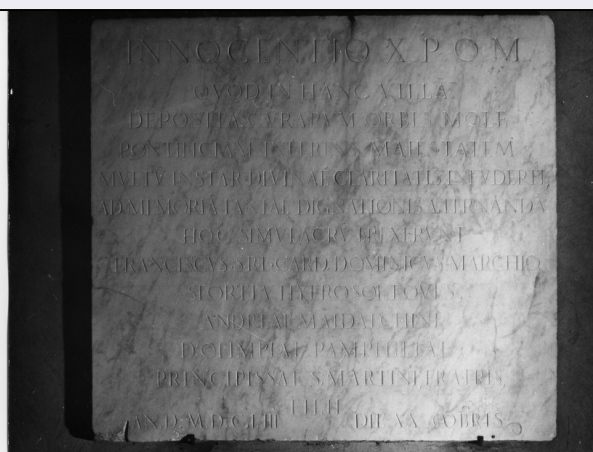 INNOCENTIO X P O M
QVOD IN HANC VILLA
DEPOSITA CVRARVM ORBIS MOLE
PONTIFICIAM INTERIVS MAIESTATEM
VVLTV INSTAR DIVINAE CLARITATIS
AD MEMORIA TANTAE DIGNATIONIS AETERNANDA
HOC SIMVLACRV EREXERVNT
FRANCISCVS CARD. DOMINICVS MARCHIO
SFORTIA
ANDREAE MAIDALCHINI
D OLIMPIAE PAMPHILIAE
PRINCIPISSAE S. MARTINI FRATRIS
FILII
AN. D. M.D.C.LIII DIE XX